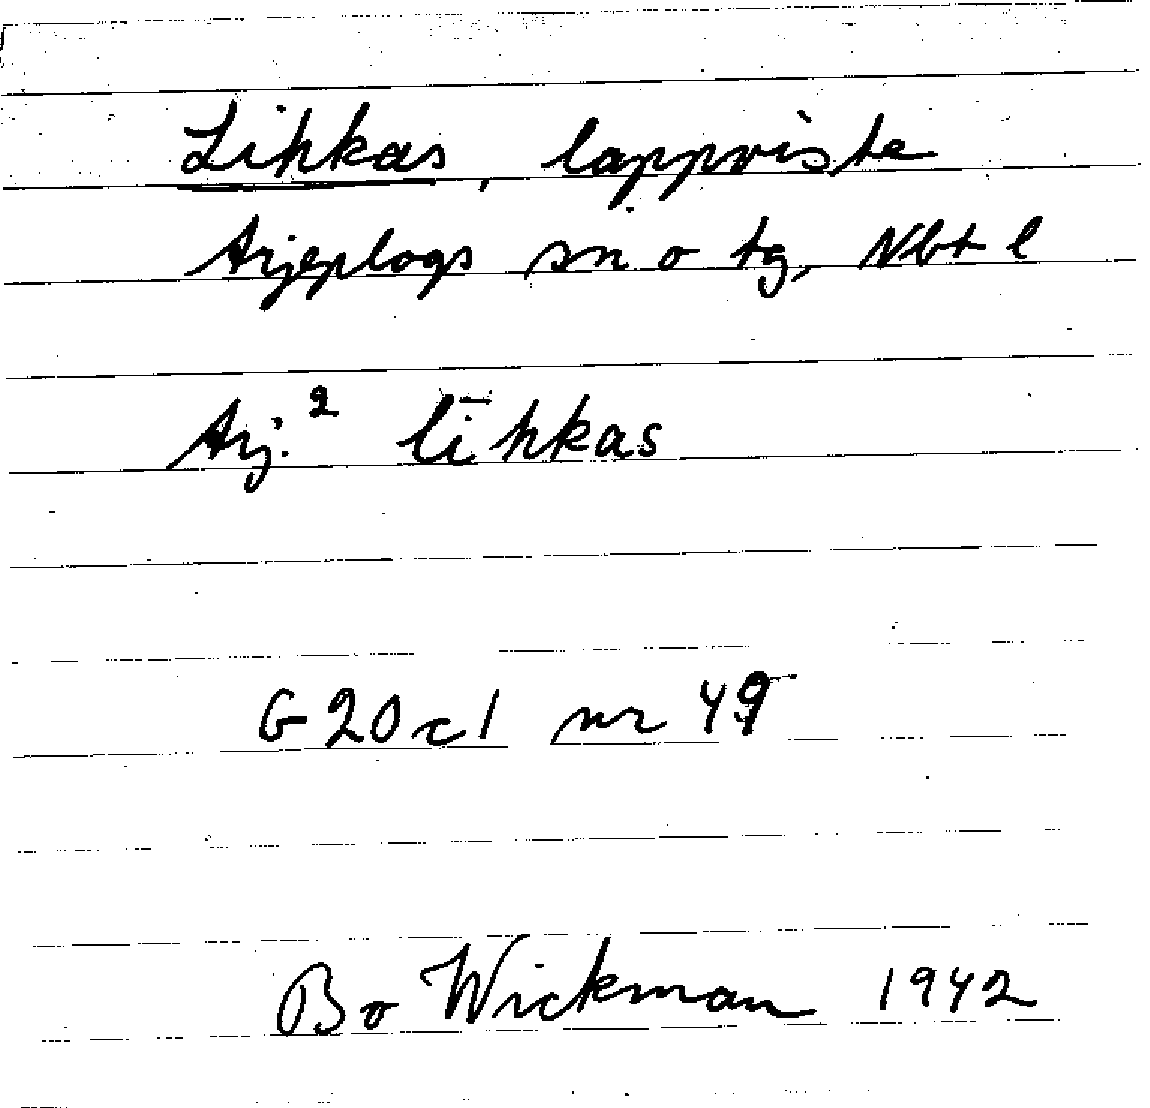 Lihkas, lappviste
Arjeplogs sn o tg, Nbt l
Arj.² lī hkas
G 20 c1 nr 49
Bo Wickman 1942